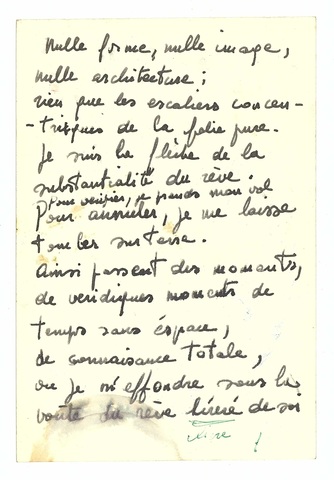 Nulle forme, nulle image,
nulle architecture ;
rien que les escaliers concen-
-triques de la folie pure.
Je suis la flèche de la
substantialité du rêve.
Pour vérifier, je prends mon vol
Pour annuler, je me laisse
tomber sur terre.
Ainsi passent des moments,
de veridiques moments de
temps sans éspace,
de connaissance totale,
ou je m'effondre sous la
voute du rêve de soi